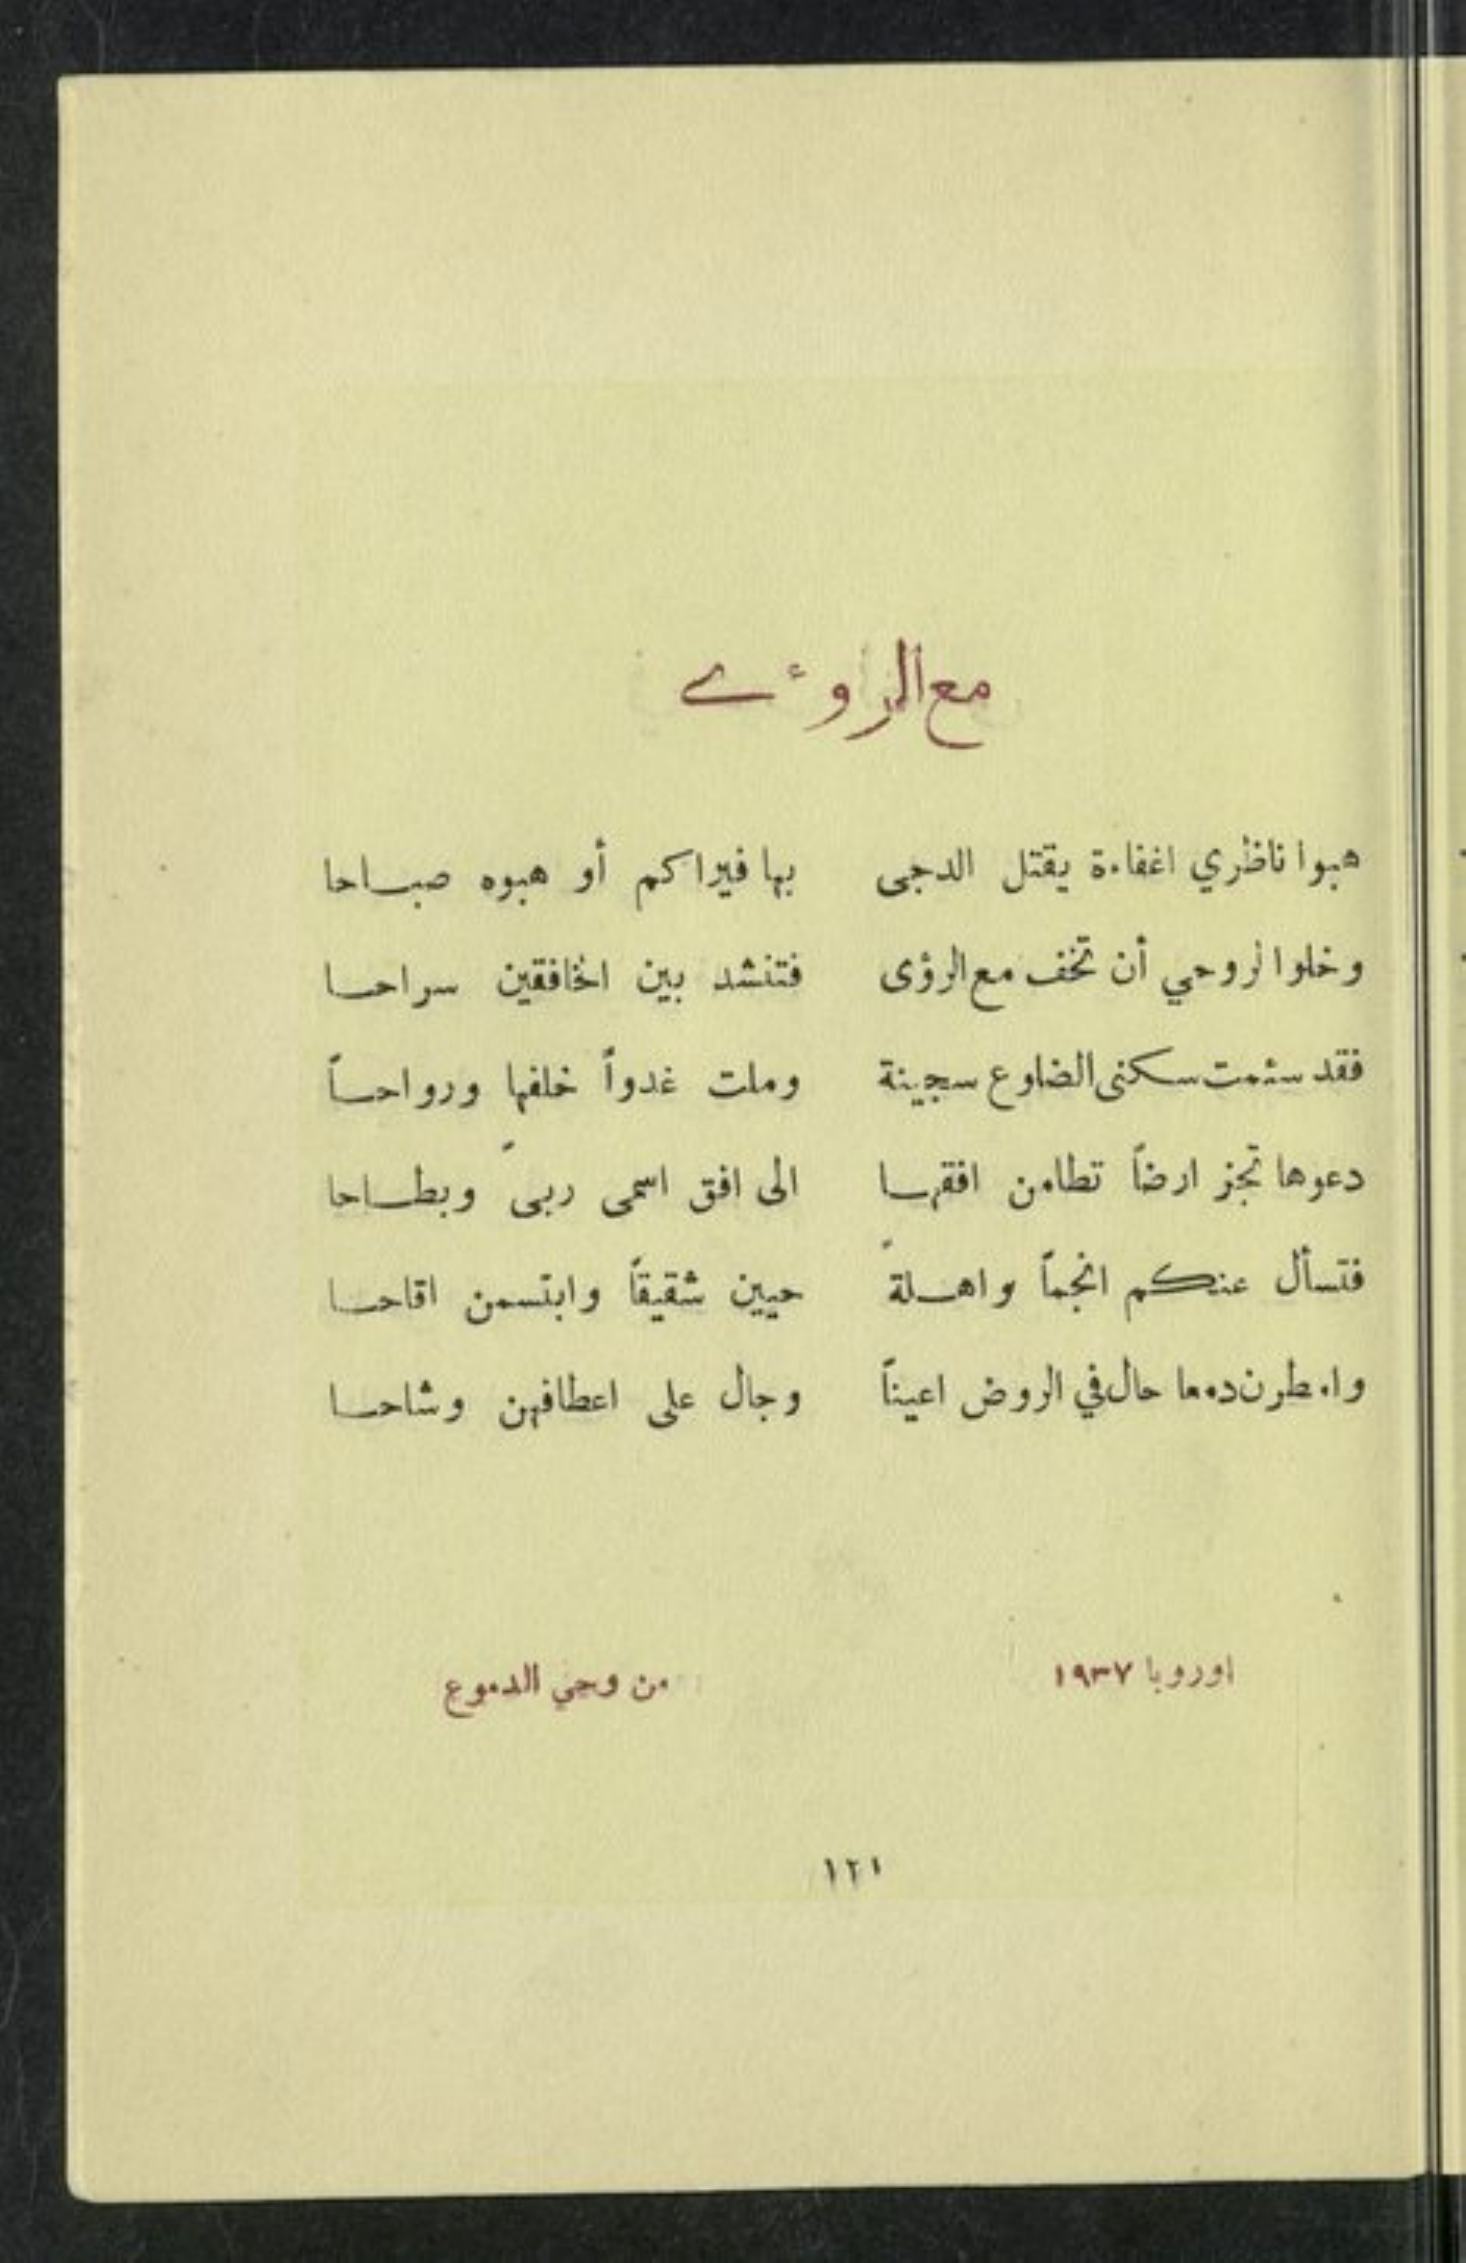 مع الرؤى
هبوا ناظري اغفاءة يقتل الدجى بها فيراكم أو هبوه صباحا
وخلوا لروحي أن تخف مع الرؤى فتنشد بين الخافقين سراحا
فقد سئمت سكنى الضلوع سجينة وملت غدواً خلفها ورواحاً
دعوها تجز ارضاً تطامن افقها الى افق اسمى ربىً وبطاحا
فتسأل عنكم انجماً واهلةً حيين شقيقاً وابتسمن اقاحا
وامطرن دمعا حال في الروض اعيناً وجال على اعطافهن وشاحا
اوروبا ١٩٣٧ من وحي الدموع
١٢١